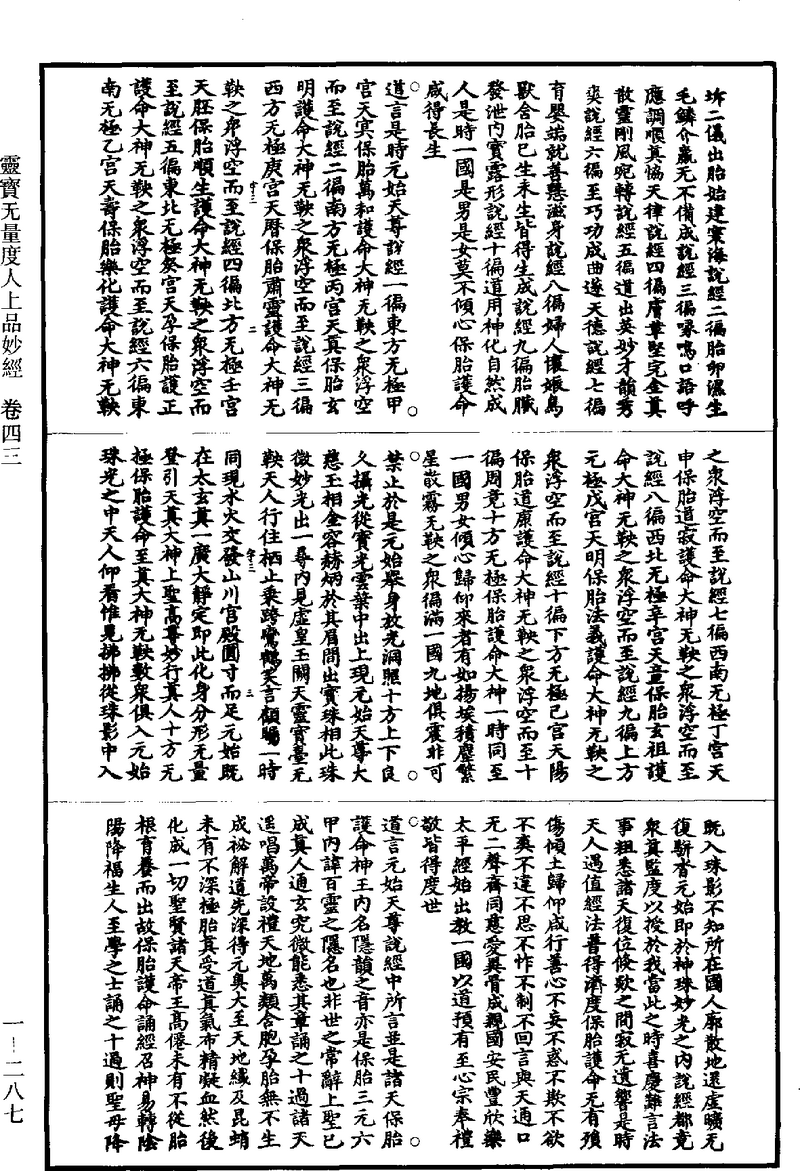 坼二儀出胎始建寰海說經二徧胎卵濕生
毛鱗介羸无不備成說經三徧啄鳴口語呼
應調順真恊天律說經四徧膚革堅完金真
散靈剛風宛轉說經五徧道出英妙才韻秀
奕說經六徧至巧功成曲遂天德說經七徧
育嬰端就善慧滋身說經八徧婦人懷娠鳥
獸含胎已生未生皆得生成說經九徧胎臟
發泄內寶露形說經十徧道用神化自然成
人是時一國是男是女莫不傾心保胎護命
咸得長生
道言是時元始天尊說經一徧東方无極甲
宮天寞保胎萬和護命大神无鞅之衆浮空
而至說經二徧南方无極丙宮天真保胎玄
明護命大神无鞅之衆浮空而至說經三徧
西方无極庚宮天曆保胎肅靈護命大神无
鞅之衆浮空而至說經四徧北方无極壬宮
天胚保胎順生護命大神无鞅之衆浮空而
至說經五徧東北无極癸宮天孕保胎護正
護命大神无鞅之衆浮空而至說經六徧東
南无極乙宮天壽保胎樂化護命大神无鞅
之衆浮空而至說經七徧西南无極丁宮天
申保胎道寂護命大神无鞅之衆浮空而至
說經八徧西北无極辛宮天童保胎玄祖護
命大神无鞅之衆浮空而至說經九徧上方
无極戊宮天明保胎法羲護命大神无鞅之
衆浮空而至說經十徧下方无極已宮天陽
保胎道康護命大神无鞅之衆浮空而至十
徧周竟十方无極保胎護命大神一時同至
一國男女傾心歸仰來者有如揚埃積塵繁
星散霧无鞅之衆徧滿一國九地俱震非可
禁止於是元始舉身放光洞照十方上下良
久攝光從寶光雲葉中出上現元始天尊大
慈玉相金容赫炳於其眉間出寶珠相此珠
微妙光出一尋內見虛皇玉闕天靈寶臺无
鞅天人行住栖止乗跨鸞鶴笑言顧矚一時
同現水火交發山川宮殿圓寸而足元始旣
在太玄真一廣大靜定即此化身分形无量
登引天真大神上聖高尊妙行真人十方无
極保胎護命至真大神无鞅數衆俱入元始
珠光之中天人仰看惟見拂拂從珠影中入
旣入珠影不知所在國人廓散地還虛曠无
復駢沓元始即於神珠妙光之內說經都竟
衆真監度以授於我當此之時喜慶難言法
事粗悉諸天復位倏欻之間寂无遺響是時
天人遇值經法普得濟度保胎護命无有殞
傷傾土歸仰咸行善心不妄不惑不欺不欲
不爽不違不思不怍不制不回言與天通口
无二聲齊同慈愛異骨成親國安民豐欣樂
太平經始出教一國以道預有至心宗奉禮
敬皆得度世
道言元始天尊說經中所言並是諸天保胎
護命神王內名隱韻之音亦是保胎三元六
甲內諱百靈之隱名也非世之常辭上聖已
成真人通玄究微能悉其章誦之十過諸天
遥唱萬帝設禮天地萬類含胞孕胎無不生
成祕解道先深得元奧大至天地纎及昆蛸
未有不深極胎真受道真氣布精凝血然後
化成一切聖賢諸天帝王高僊未有不從胎
根育養而出故保胎護命誦經召神易轉陰
陽降福生人至學之士誦之十過則聖母降
靈寶无量度人上品妙經　卷四三
一—二八七